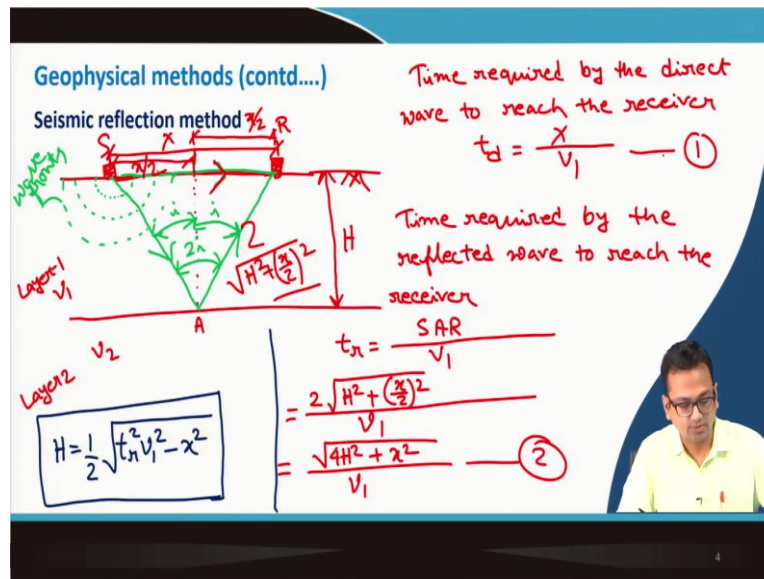 Geophysical methods (contd....)
Seismic reflection method
S
x
x/2
x/2
R
wave fronts
i
i
2i
2
√H²+(x/2)²
H
Layer-1
V₁
A
V₂
Layer2
H = 1/2 √tᵣ²V₁² - x²
Time required by the direct
wave to reach the receiver
t_d = x/V₁ — ①
Time required by the
reflected wave to reach the
receiver
tᵣ = SAR/V₁
= 2√H²+(x/2)²/V₁
= √4H²+x²/V₁ — ②
4